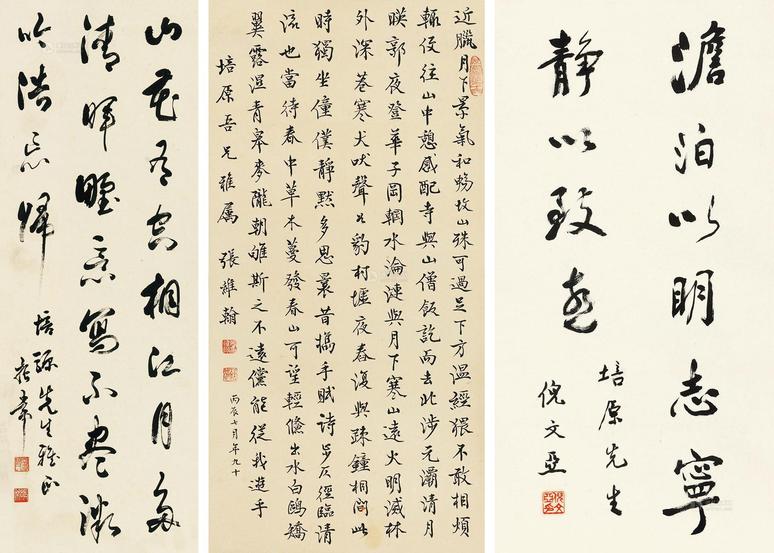 澹泊以明志寧
靜以致遠
培原先生
倪文亞
近臘月下景氣和暢故山殊可過足下方溫經猥不敢相煩
輒便往山中憩感配寺與山僧飯訖而去此涉元灞清月
映郭夜登華子岡輞水淪漣與月下寒山遠火明滅林
外深巷寒犬吠聲如豹村墟夜舂復與疎鐘相間此
時獨坐僮僕靜默多思曩昔攜手賦詩步仄徑臨清
流也當待春中草木蔓發春山可望輕鯈出水白鷗矯
翼露溼青皋麥隴朝雊斯之不遠儻能從我遊乎
培原吾兄雅屬 張維翰
丙辰七月年九十
山花相江月
清暉寫不盡微
吟浩忘歸
培源先生雅正